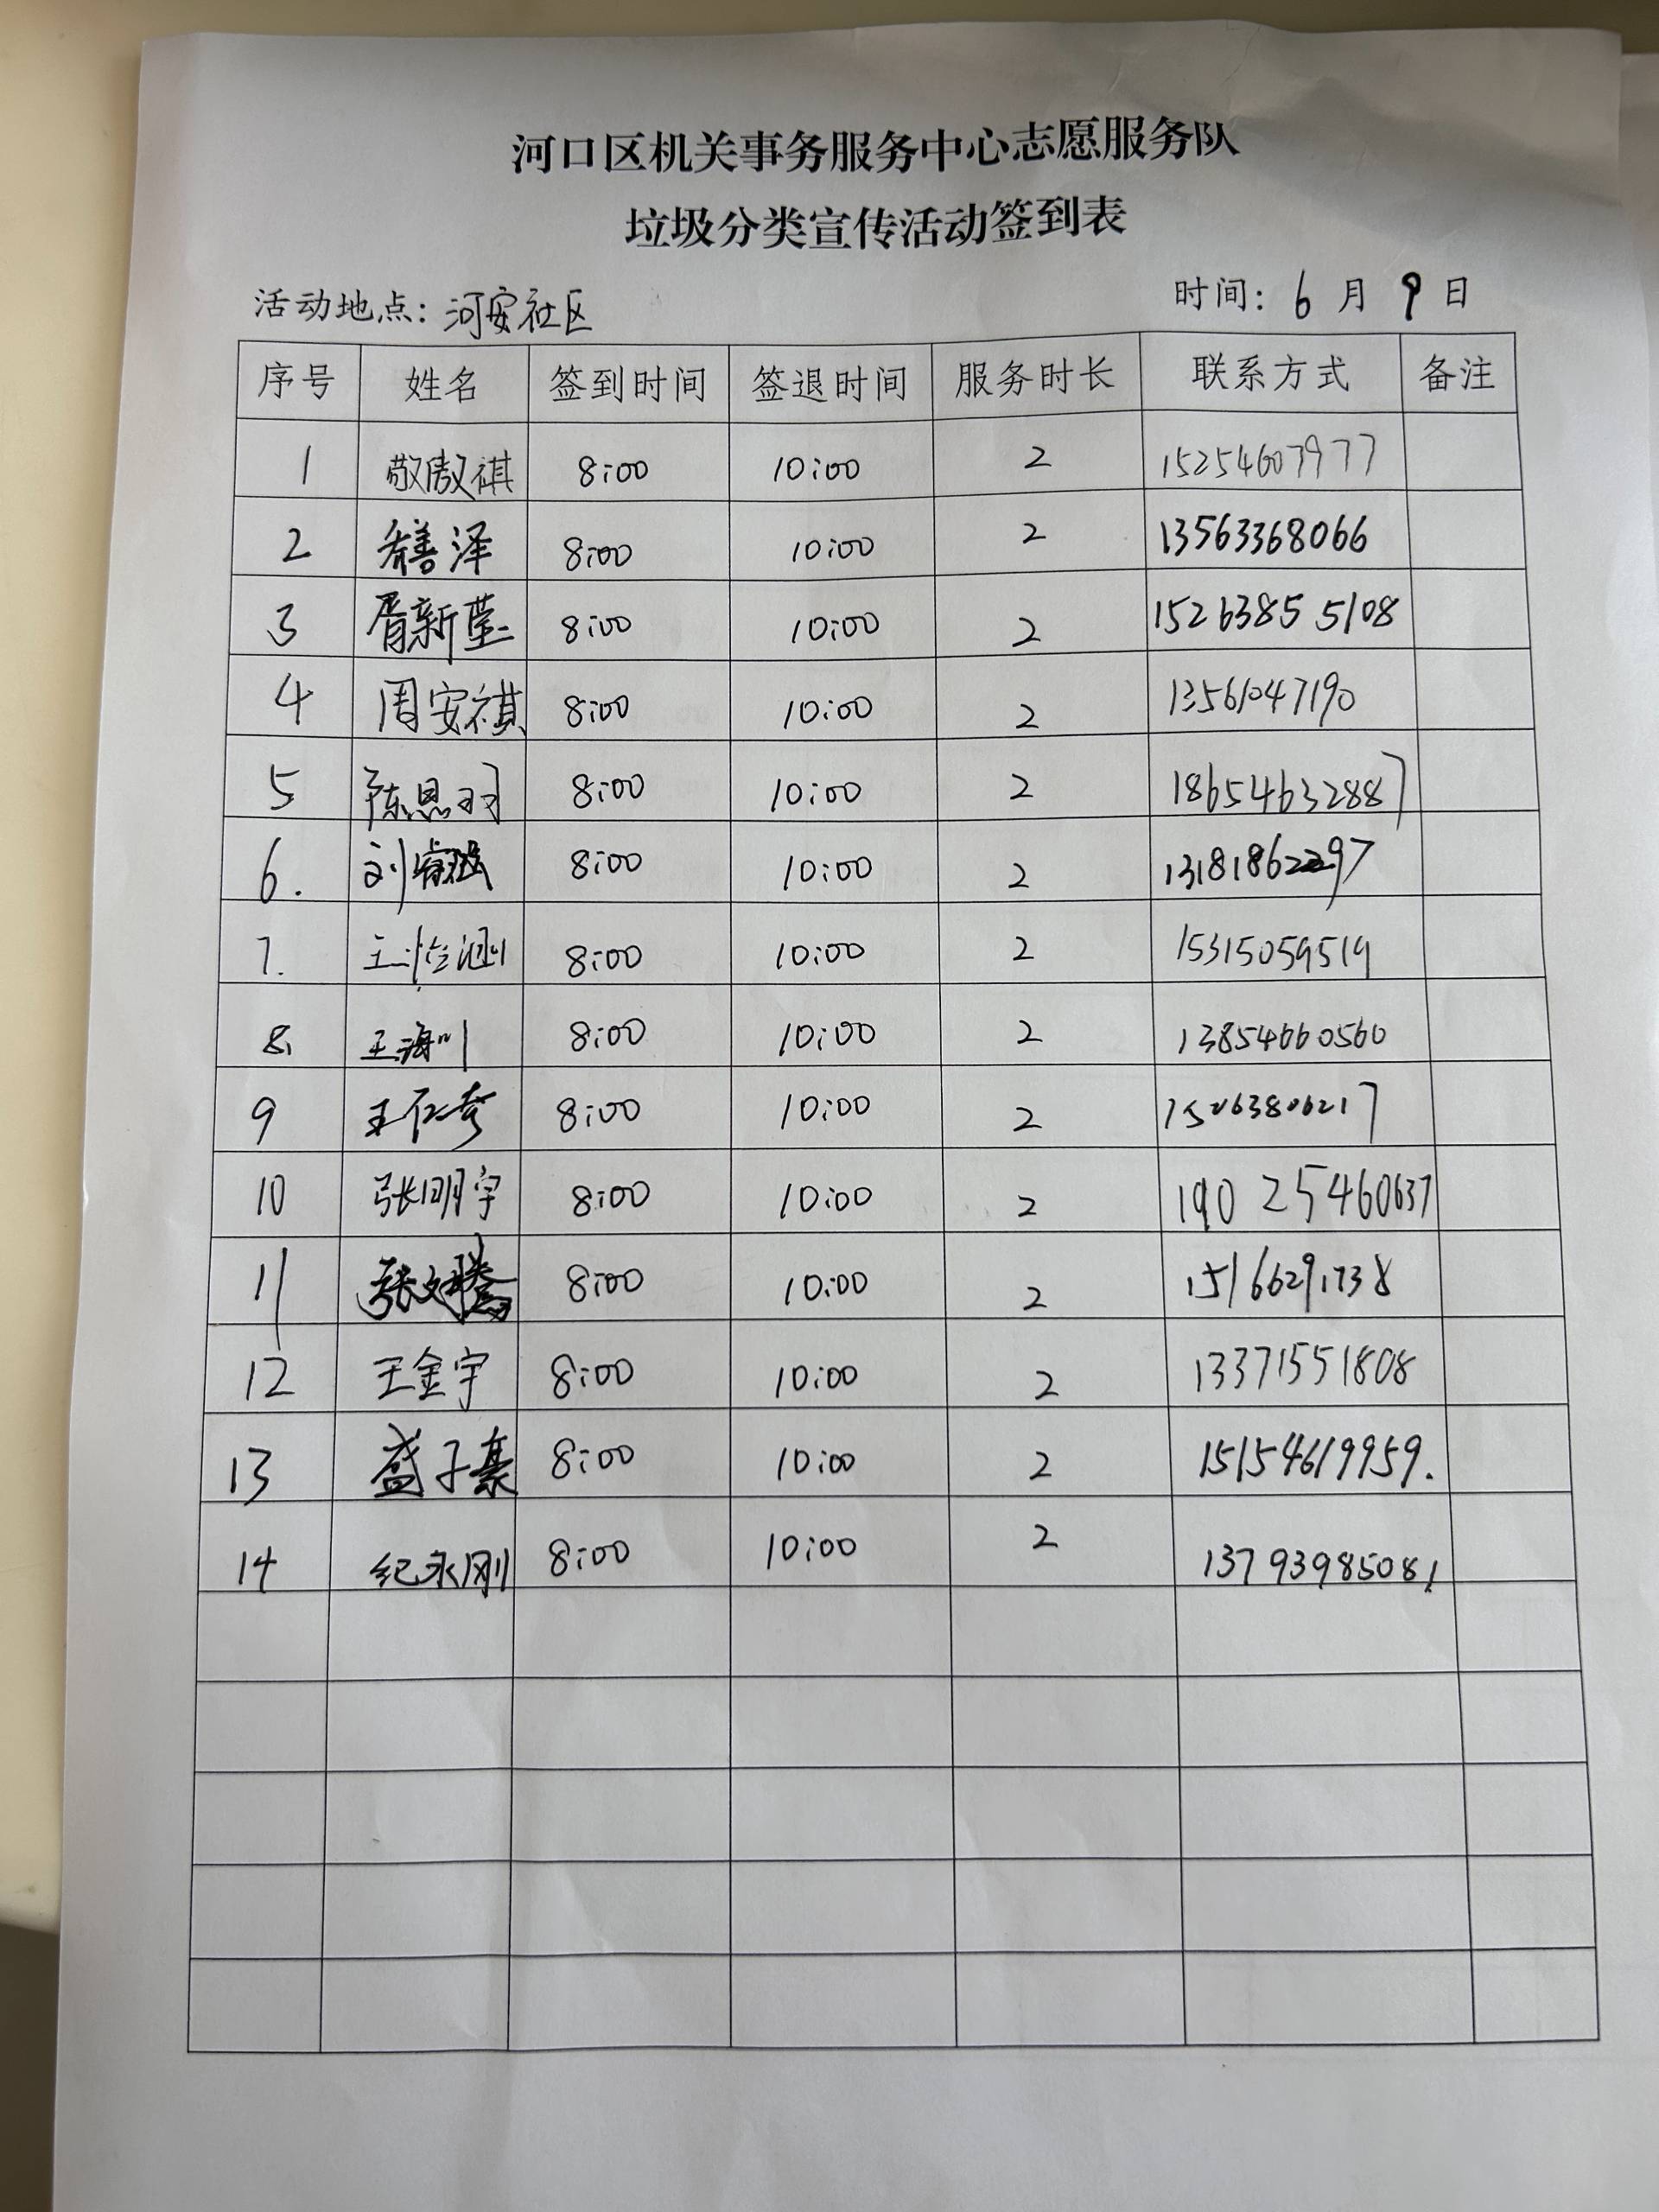 河口区机关事务服务中心志愿服务队
垃圾分类宣传活动签到表
活动地点：河安社区 时间：6月9日
序号 姓名 签到时间 签退时间 服务时长 联系方式 备注
1 敬傲祺 8:00 10:00 2 15254607977
2 善泽 8:00 10:00 2 13563368066
3 胥新莹 8:00 10:00 2 15263855108
4 周安祺 8:00 10:00 2 13561047190
5 陈思羽 8:00 10:00 2 18654632887
6. 刘睿 8:00 10:00 2 13181862297
7. 王怡涵 8:00 10:00 2 15315059519
8. 王海川 8:00 10:00 2 13854660560
9 王仁奇 8:00 10:00 2 15263806217
10 张明宇 8:00 10:00 2 19025460637
11 张文腾 8:00 10:00 2 15166291738
12 王金宇 8:00 10:00 2 13371551808
13 盛子豪 8:00 10:00 2 15154619959.
14 纪永刚 8:00 10:00 2 13793985081